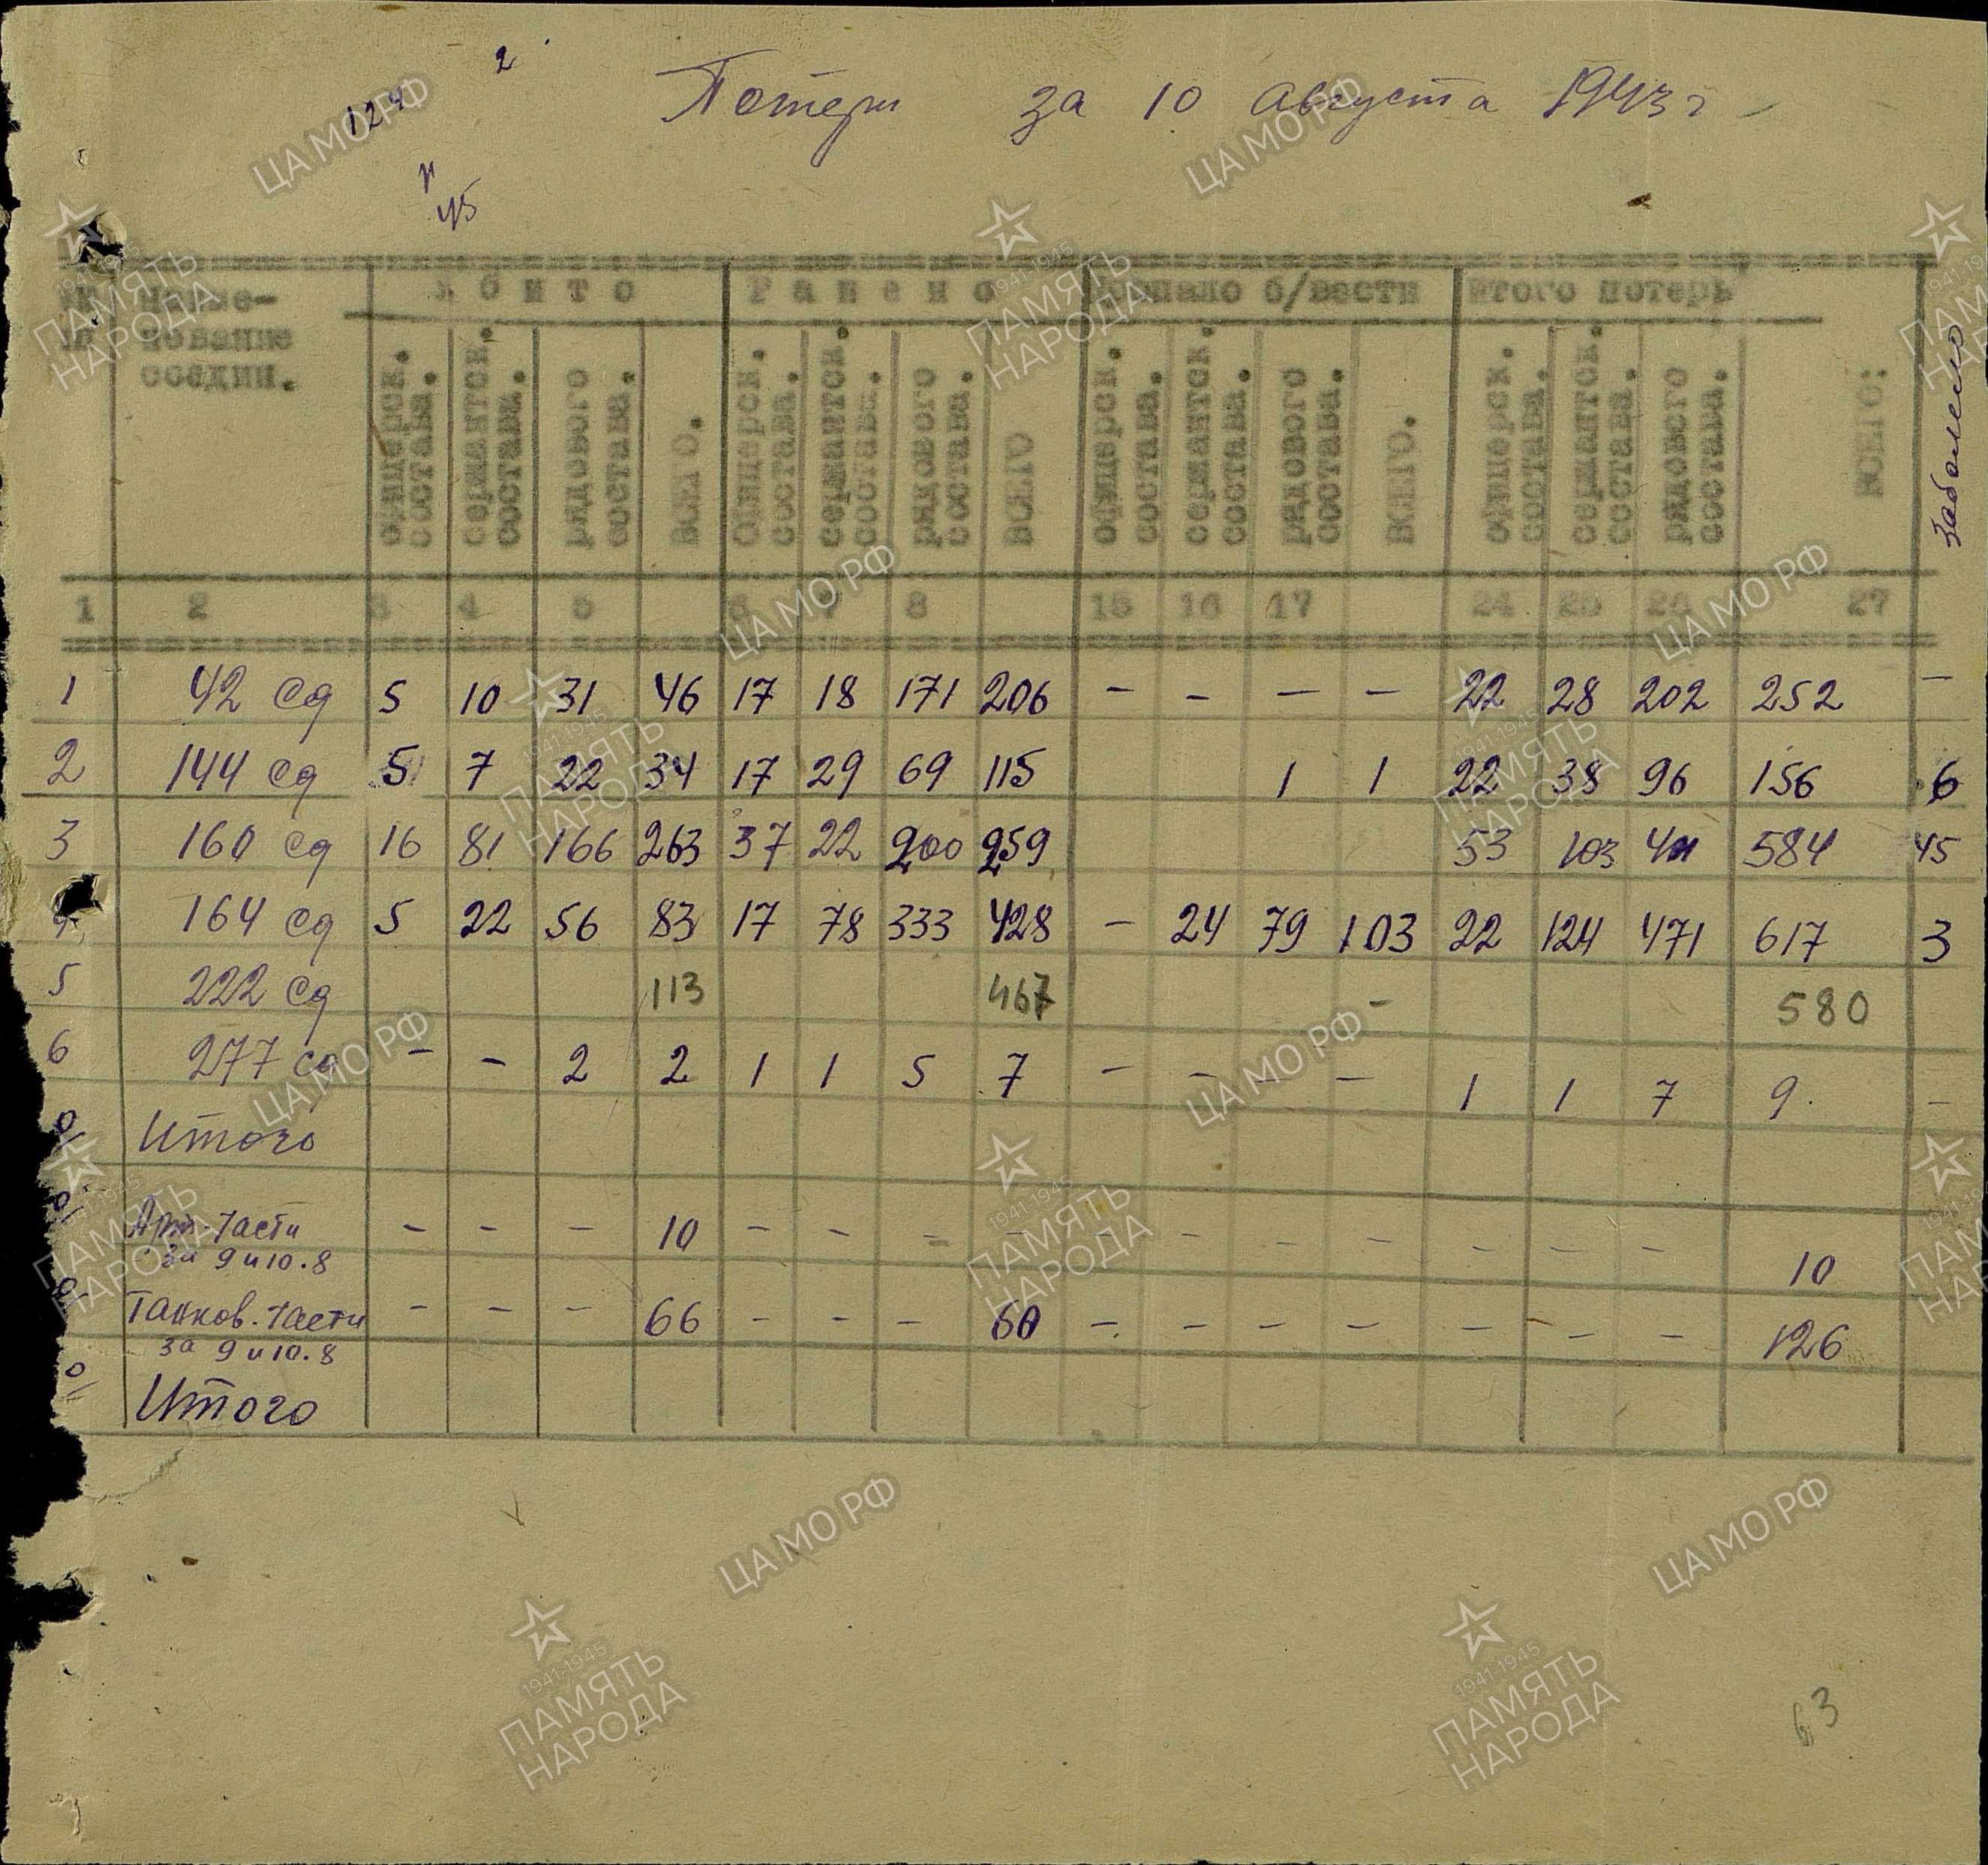 2
124
45
Потери за 10 августа 1943 г
№№ Наиме- У б и т о Р а н е н о Пропало б/вести Итого потерь
пп нование
соедин.
офицерск. состава. сержантск. состава. рядового состава. ВСЕГО. Офицерск. состава. сержантск. состава. рядового состава. ВСЕГО офицерск. состава. сержантск. состава. рядового состава. ВСЕГО. офицерск. состава. сержантск. состава. рядового состава. ВСЕГО: Заболело
1 2 3 4 5 6 7 8 15 16 17 24 25 26 27
1 42 сд 5 10 31 46 17 18 171 206 – – – – 22 28 202 252 –
2 144 сд 5 7 22 34 17 29 69 115 1 1 22 38 96 156 6
3 160 сд 16 81 166 263 37 22 200 259 53 103 584 45
4 164 сд 5 22 56 83 17 78 333 428 – 24 79 103 22 124 471 617 3
5 222 сд 113 467 – 580
6 277 сд – – 2 2 1 1 5 7 – – – – 1 1 7 9. –
Итого
Арт. части – – – 10 – – – – – – – – – – – 10
за 9 и 10.8
Танков. части – – – 66 – – – 60 – – – – – – – 126
за 9 и 10.8
Итого
63
ЦАМО РФ
1941-1945
ПАМЯТЬ
НАРОДА